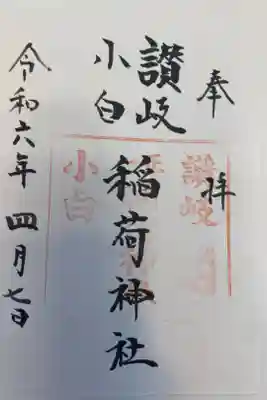 奉拝
讃岐
小白
稲荷神社
令和六年四月七日
讃岐
小白